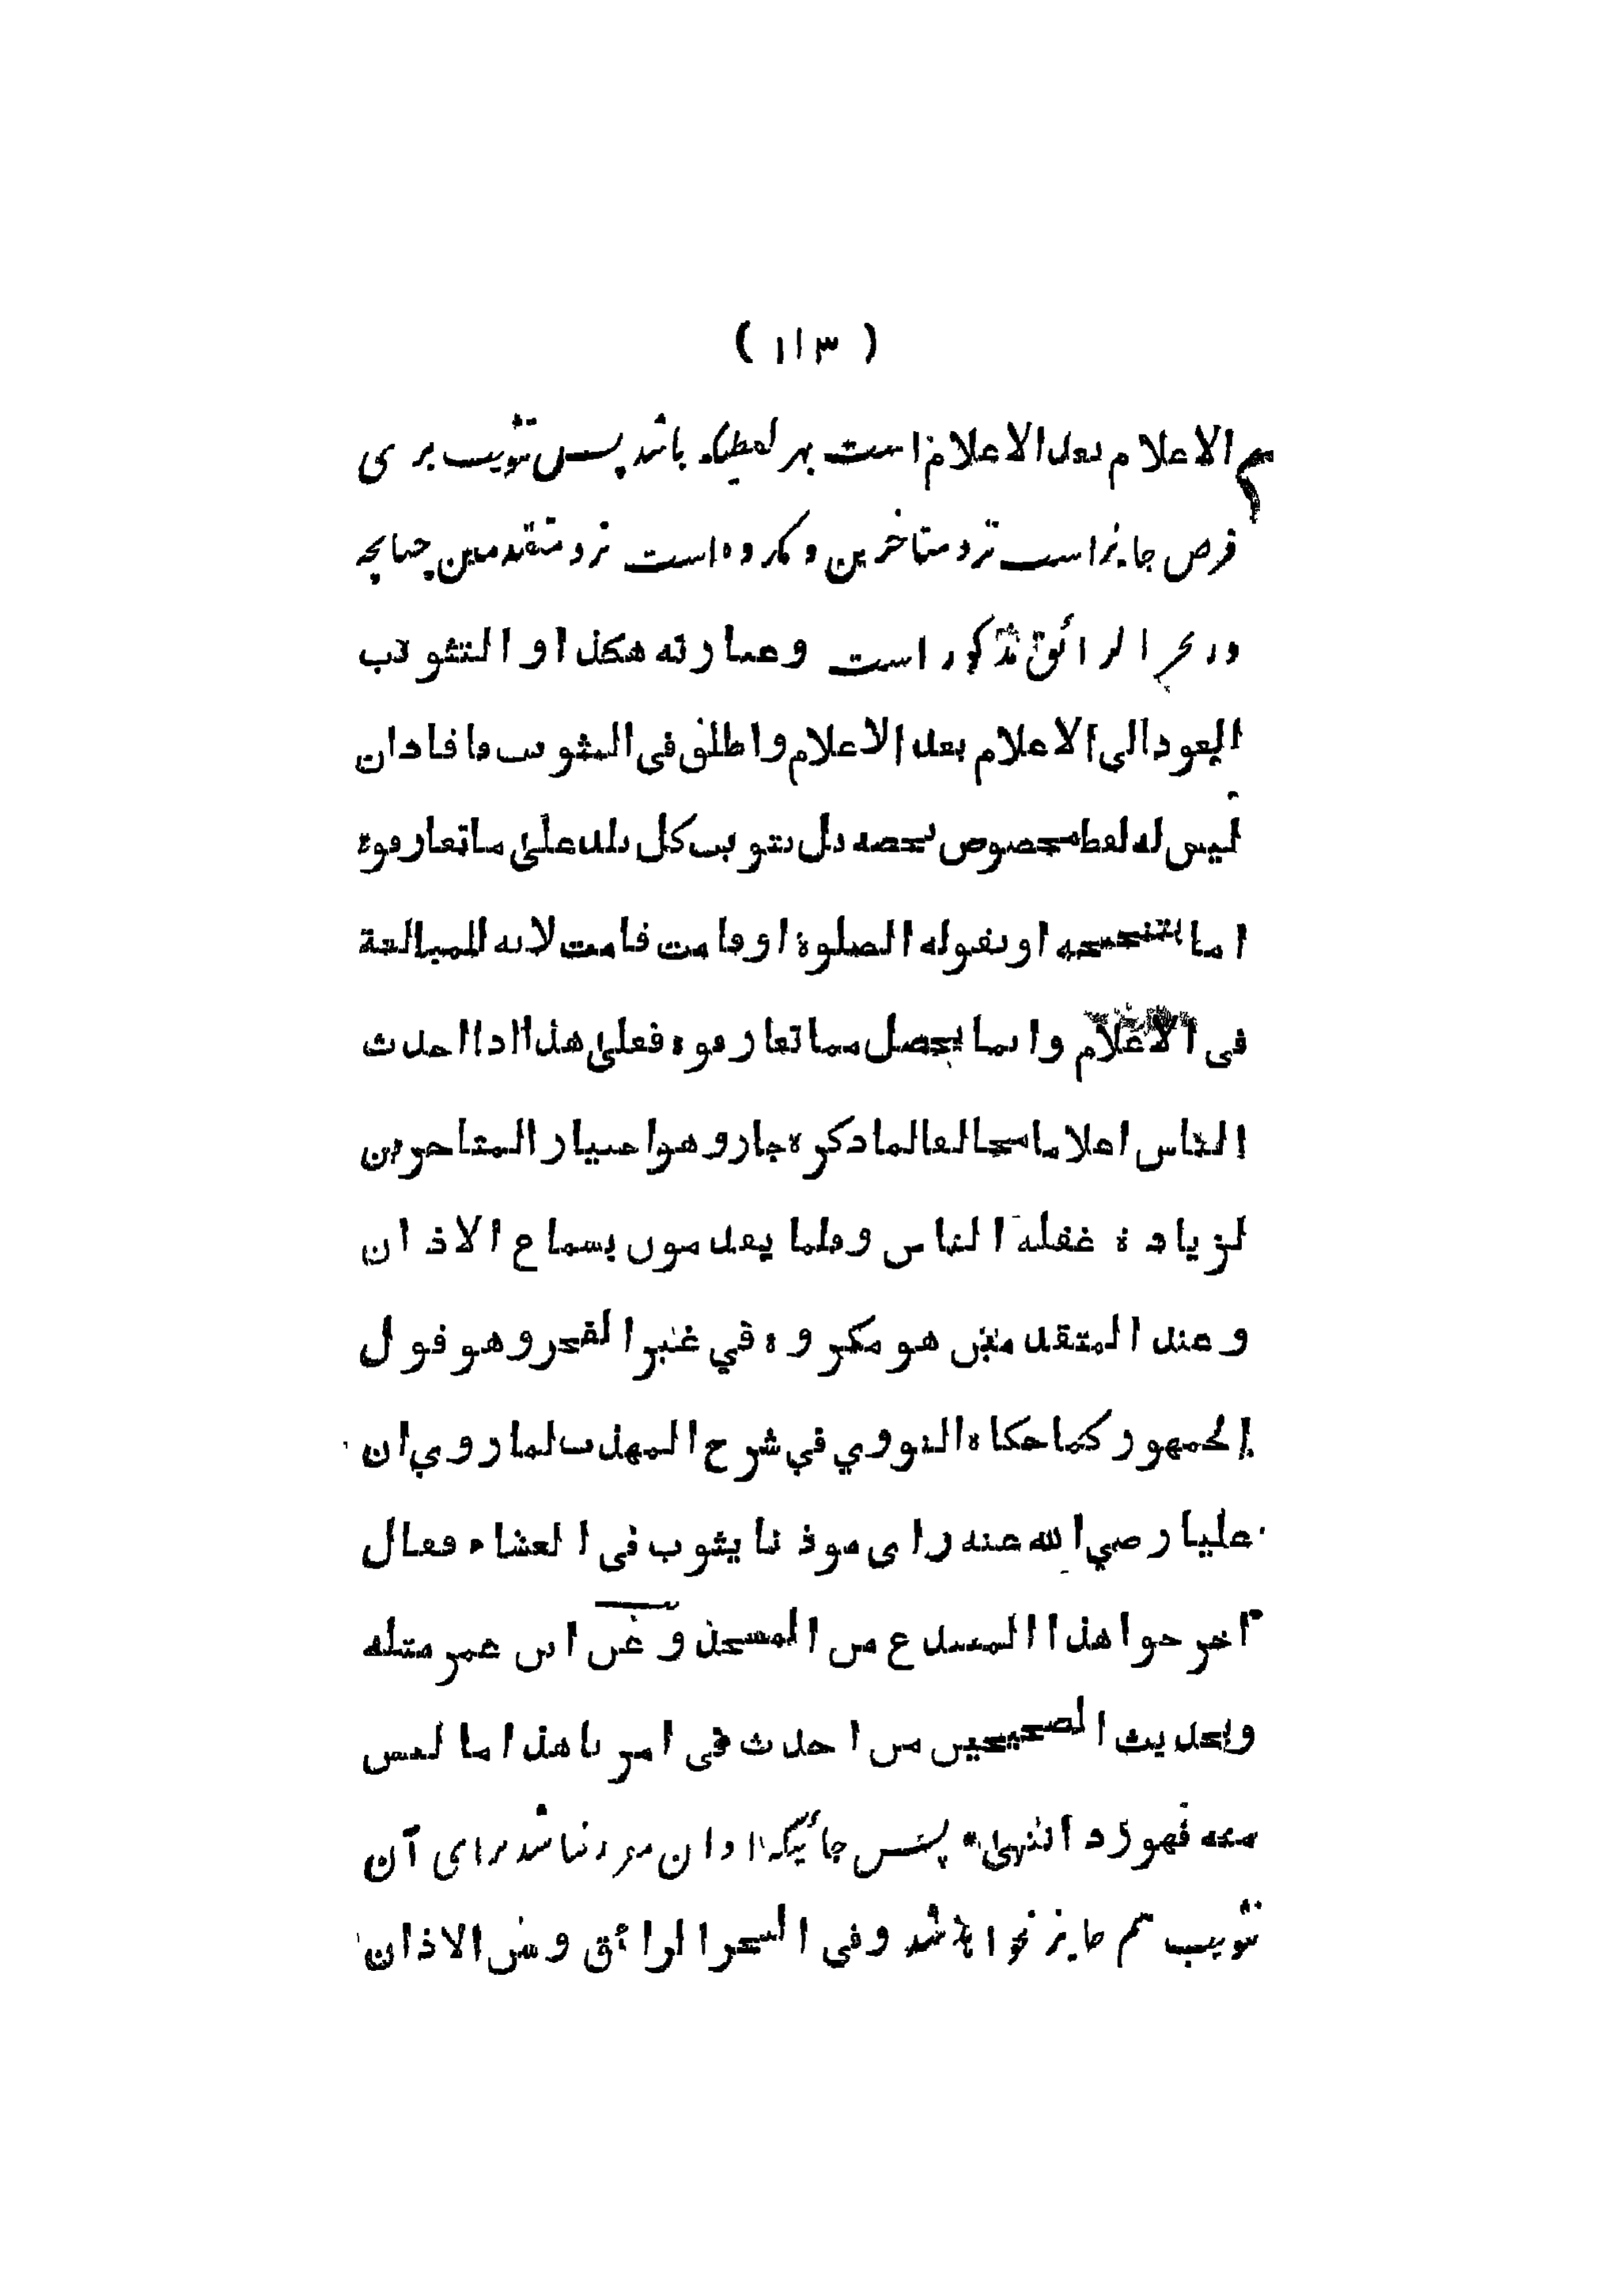 ( ١١٣ )
هم الاعلام بعد الاعلام است بهر لفظیکه باشد پس تثویب برای
فرض جایز است نزد متاخرین و مکروه است نزد متقدمین چنانچه
در بحر الرائق مذکور است وعبارته هكذا والتثويب
العود الى الاعلام بعد الاعلام واطلق فى التثويب فافادان
ليس له لفظ مخصوص يخصه بل تثويب كل بلد على ما تعارفوه
اما بتنحنحه او بقوله الصلوة او قامت قامت لانه للمبالغة
فى الاعلام وانما يحصل مما تعارفوه فعلى هذا اذا احدث
الناس اعلاما مخالفا لما ذكره جاز وهو اختيار المتاخرين
لزيادة غفلة الناس وقلما يقدمون بسماع الاذان
وعند المتقدمين هو مكروه في غير الفجر وهو قول
الجمهور كما حكاه النووي في شرح المهذب لما روي ان
عليا رضي الله عنه راى موذنا يثوب فى العشاء فقال
اخرجوا هذا المبتدع من المسجد وعن ابن عمر مثله
وبحديث الصحيحين من احدث فى امرنا هذا ما ليس
منه فهو رد انتهى * پس جائیکه اذان هم درنباشد برای آن
تثویب هم جایز نخواهد شد وفى البحر الرائق وسن الاذان